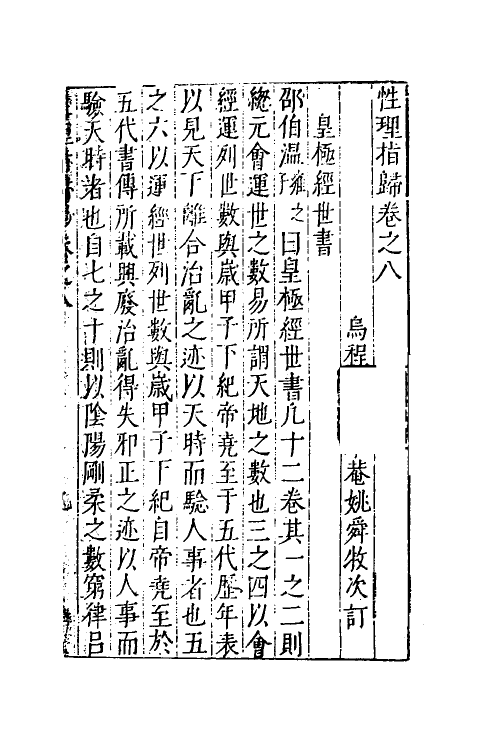 性理指歸卷之八
烏程　菴姚舜牧次訂
皇極經世書
邵伯溫雍之子曰皇極經世書凡十二卷其一之二則
總元會運世之數易所謂天地之數也三之四以會
經運列世數與歲甲子下紀帝堯至于五代歷年表
以見天下離合治亂之迹以天時而驗人事者也五
之六以運經世列世數與歲甲子下紀自帝堯至於
五代書傳所載興廢治亂得失邪正之迹以人事而
驗天時者也自七之十則以陰陽剛柔之數窮律呂